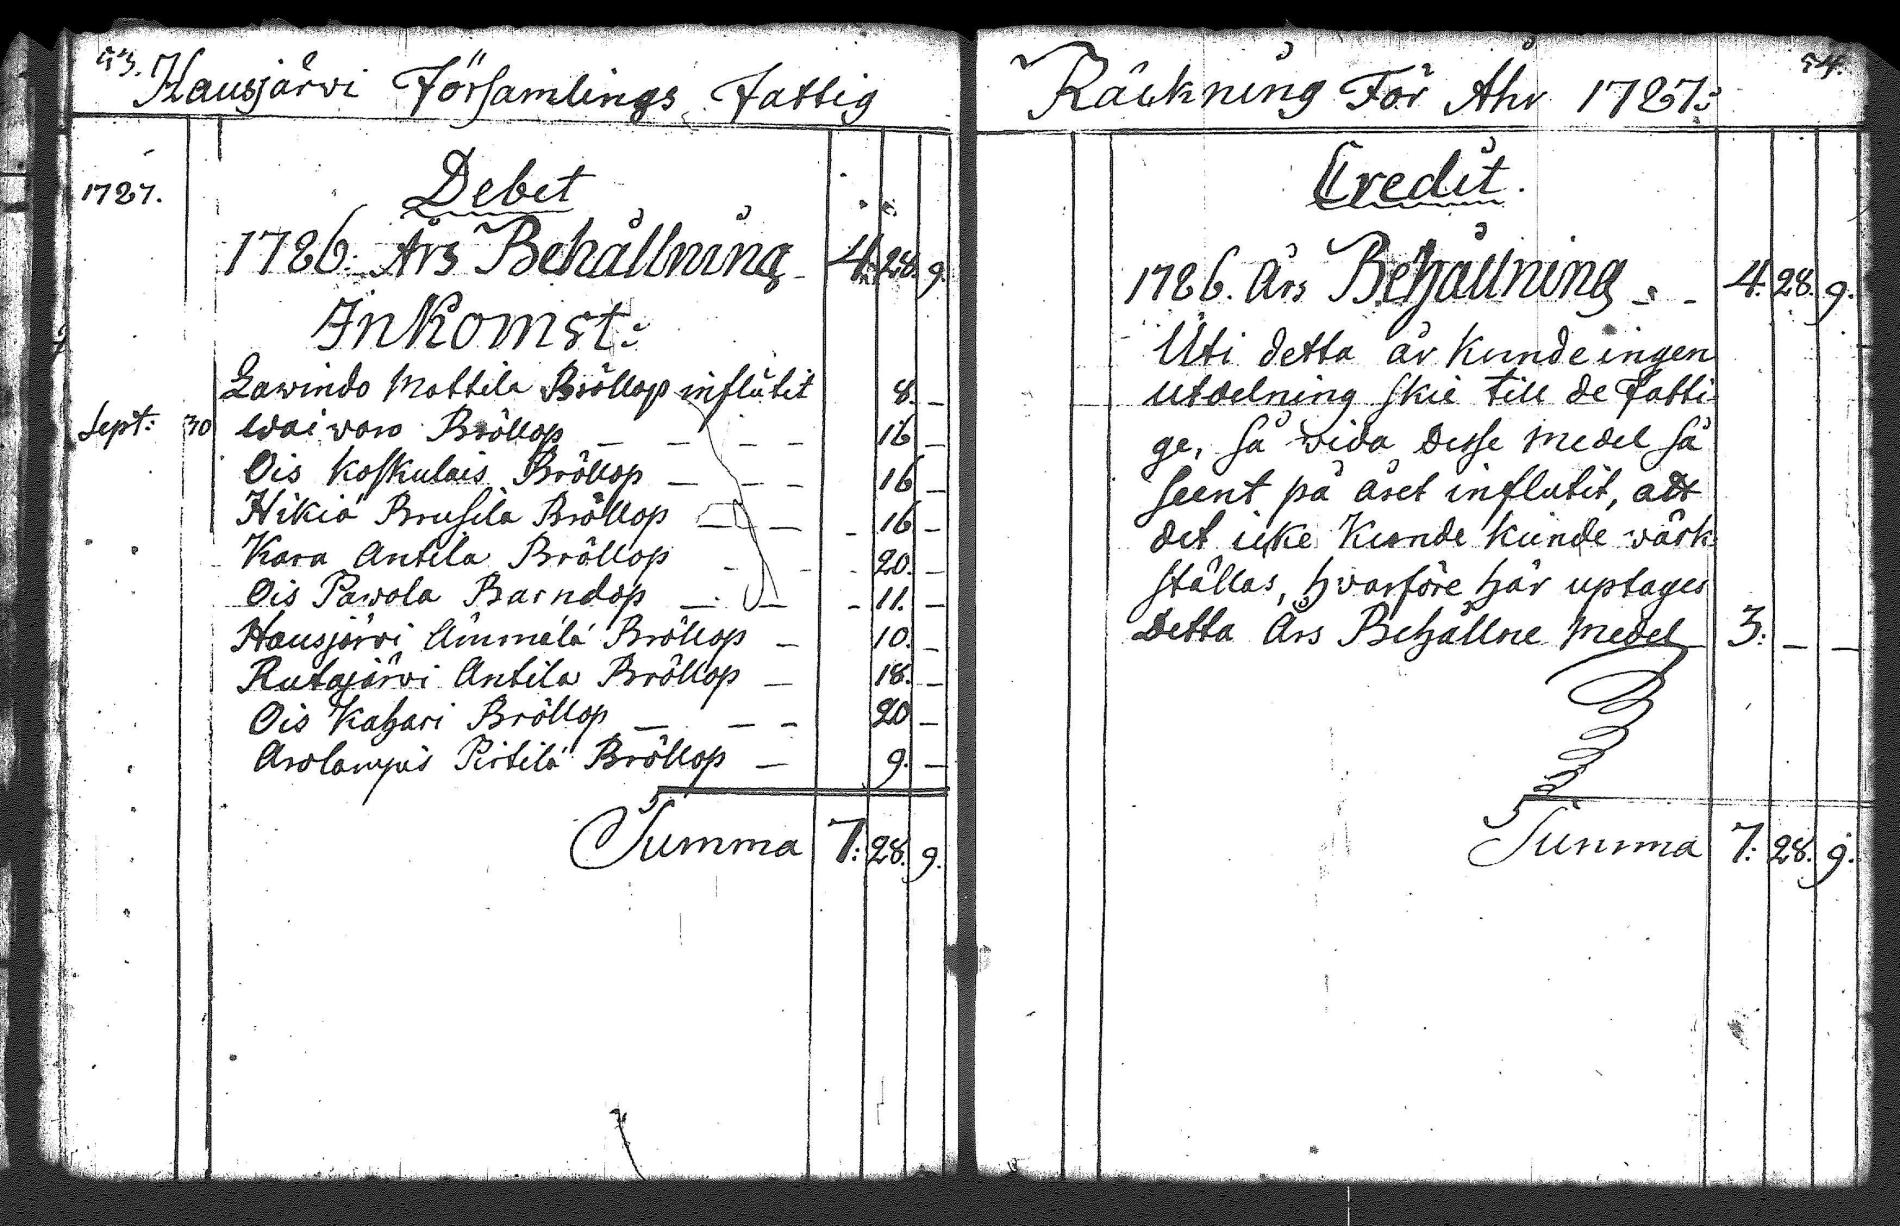 53.
Hausjärvi Församlings Fattig
1787.
Debet
1786. Års Behållning 4. 28. 9.
Inkomst:
Lawindo Mattila Bröllop influtit 8. —
Sept: 30 Waiwaro Bröllop — — — — 16 —
Ois Koskulais Bröllop — — — 16 —
Hikiä Brusila Bröllop — — - 16 -
Kara Antila Bröllop - - - 20. —
Ois Pawola Barndop — — - 11. —
Hausjärvi Ammälä Bröllop — 10. —
Rutajärvi Antila Bröllop — 18. —
Ois Kahari Bröllop — — - 20 —
Arolampis Pirtilä Bröllop — 9. —
Summa 7: 28. 9.
54.
Räckning För Ahr 1787:
Credit.
1786. Års Behållning - - 4. 28. 9.
Uti detta år kunde ingen
utdelning skie till de Fatti-
ge, så vida desse medel så
seent på året influtit, att
det icke kunde kunde värk-
ställas, hvarföre här uptages
Detta Års Behållne Medel 3: — —
Summa 7: 28. 9.